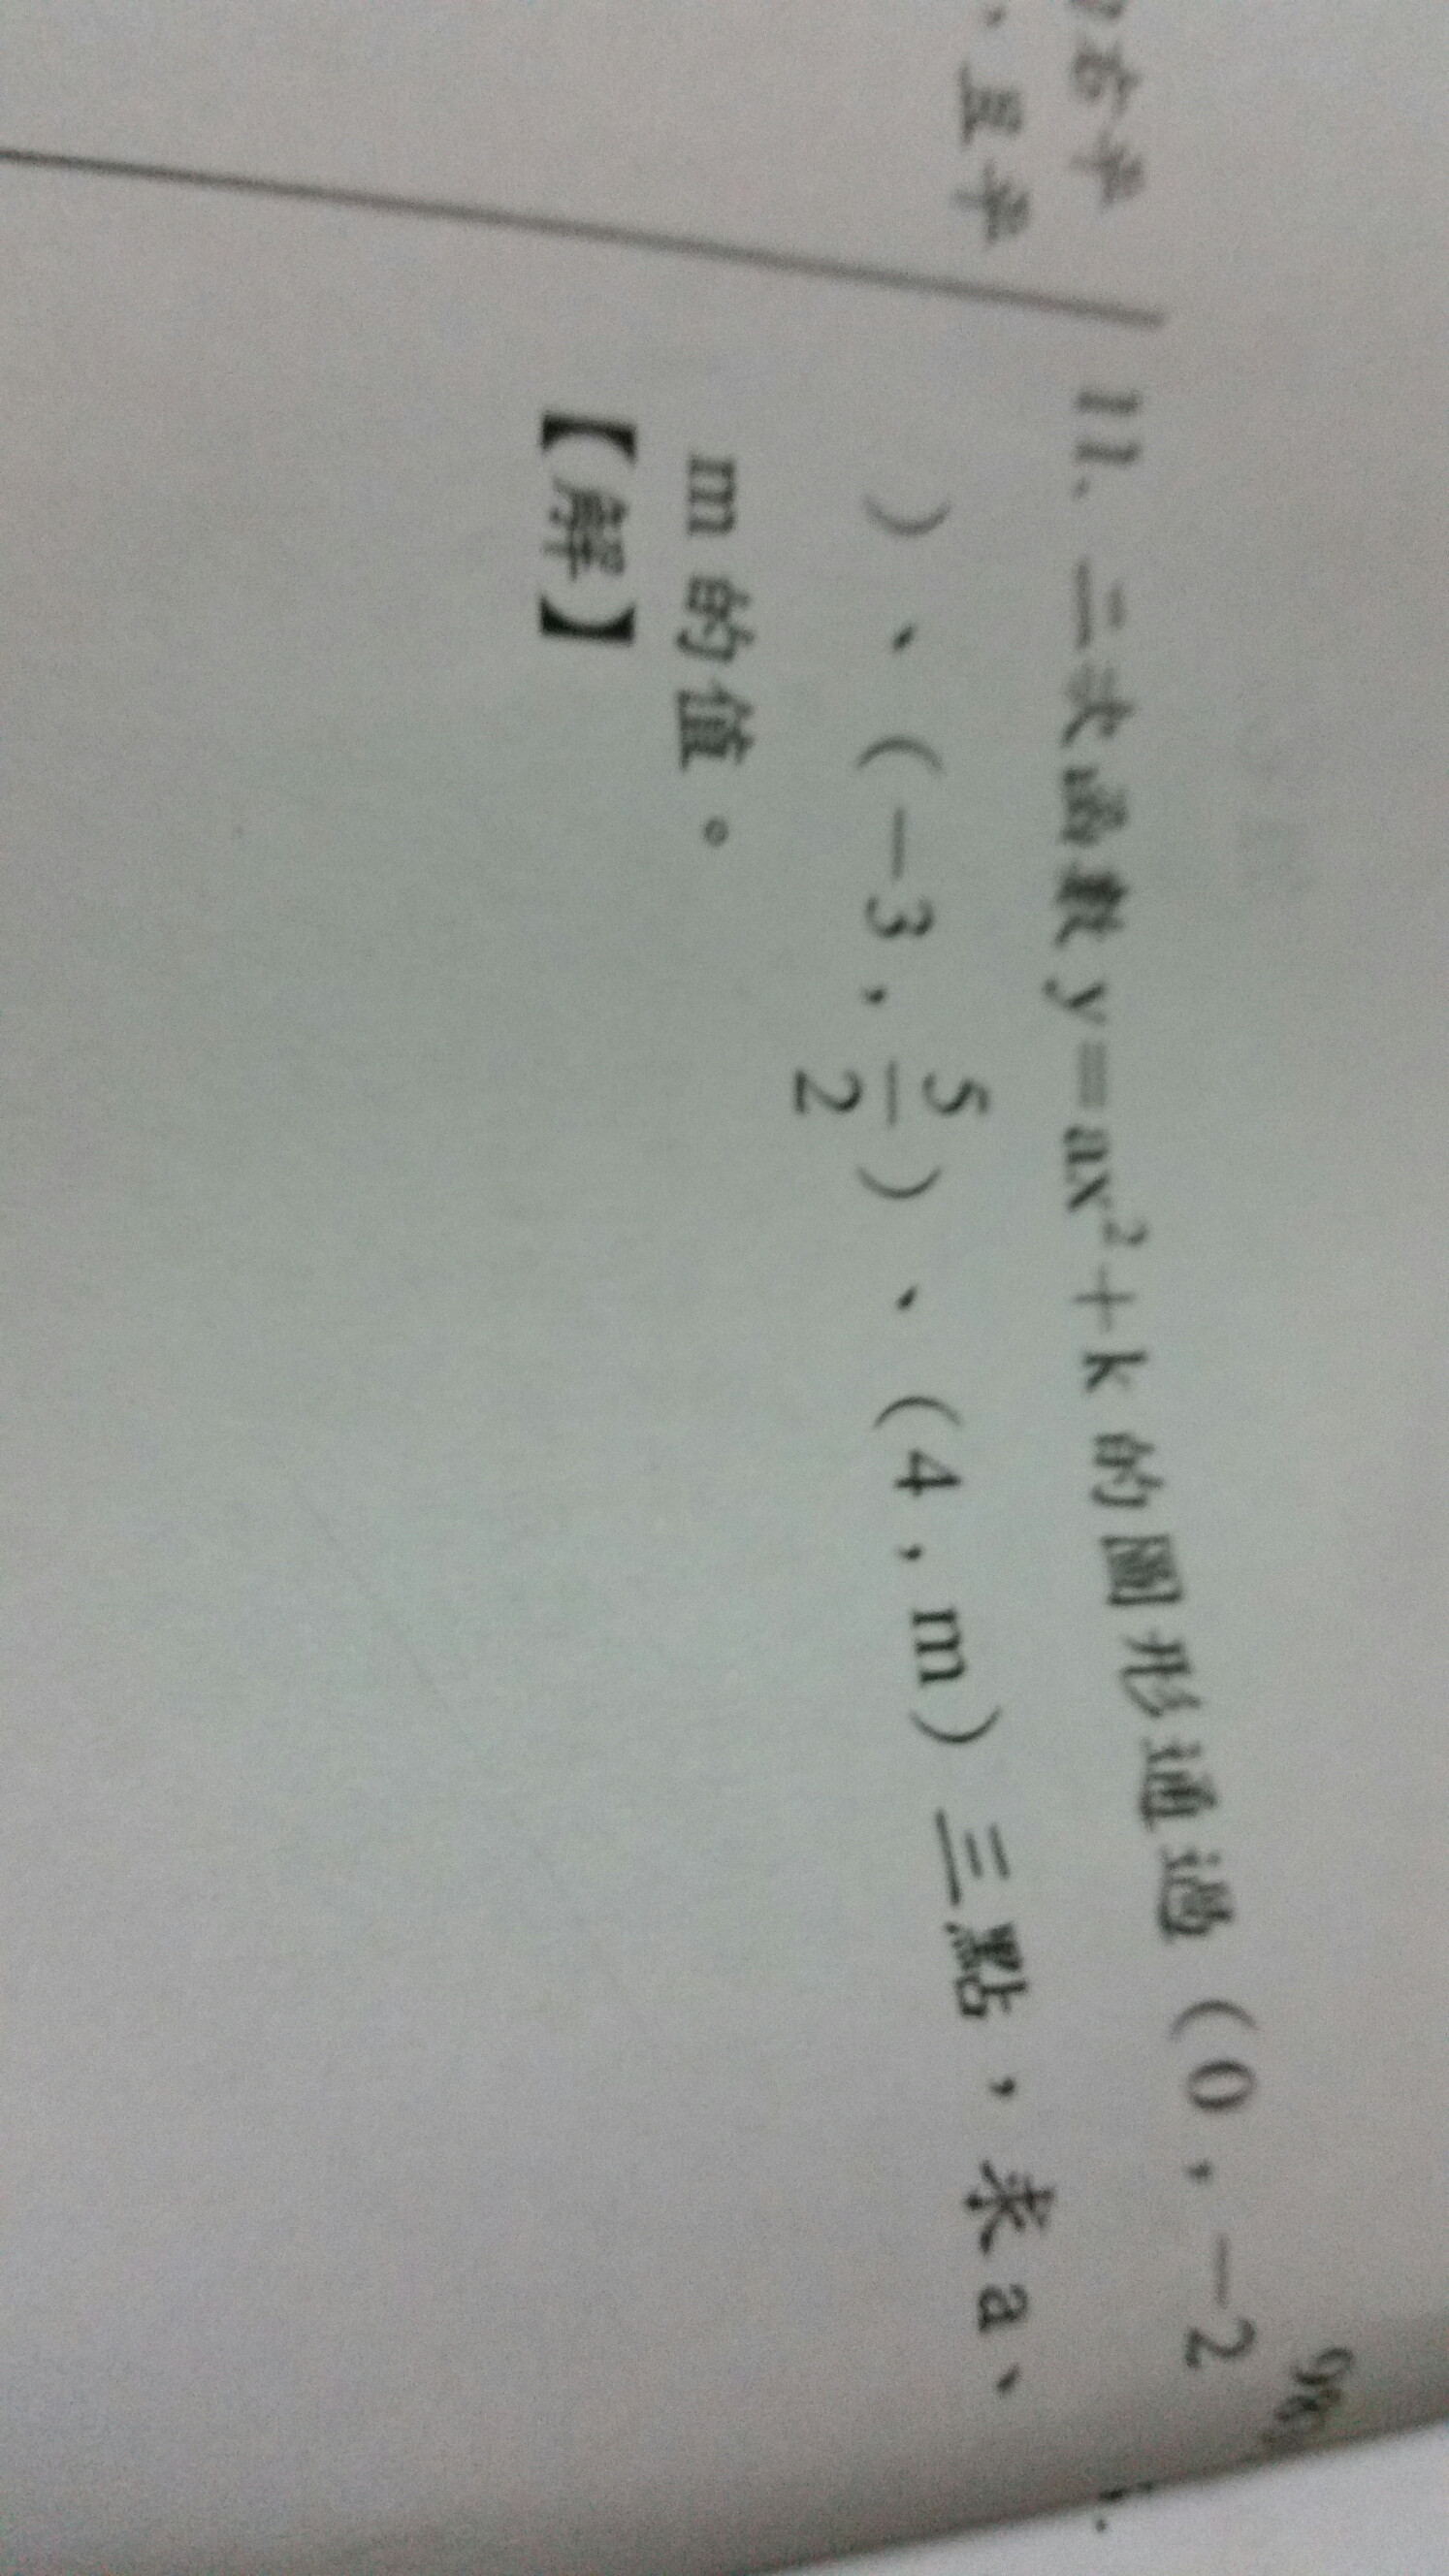 11. 二次函數 y=ax²+k 的圖形通過（0，－2
）、（－3，5/2）、（4，m）三點，求 a、
m 的值。
【解】